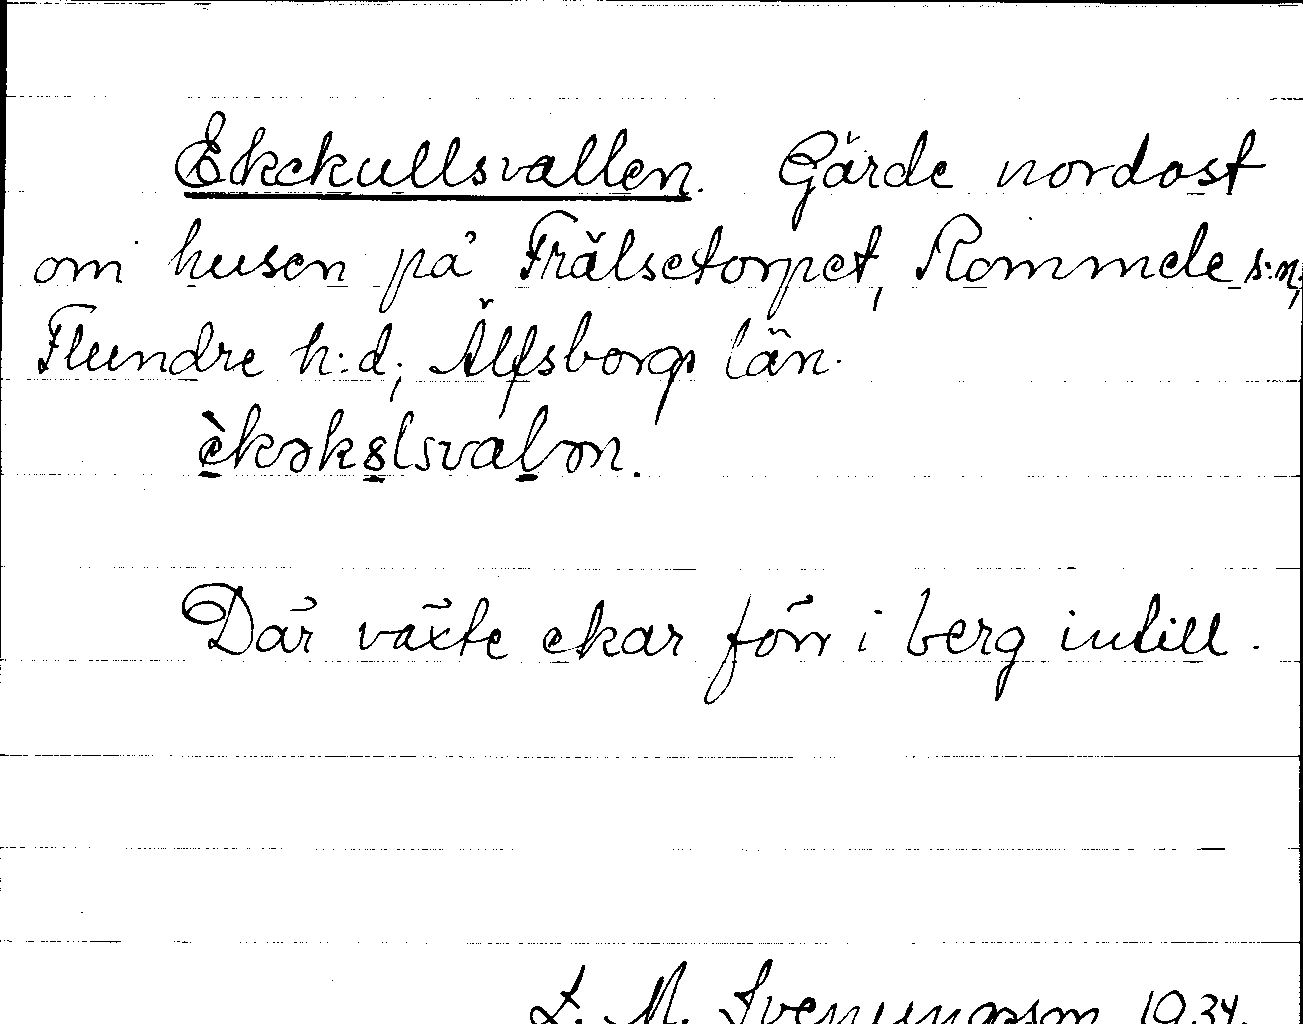 Ekekullsvallen. Gärde nordost
om husen på Frälsetorpet, Rommele s:n,
Flundre h:d, Älfsborgs län.
èkəkslsvalən.
Där växte ekar förr i berg intill.
L. M. Svenungsson 1934.